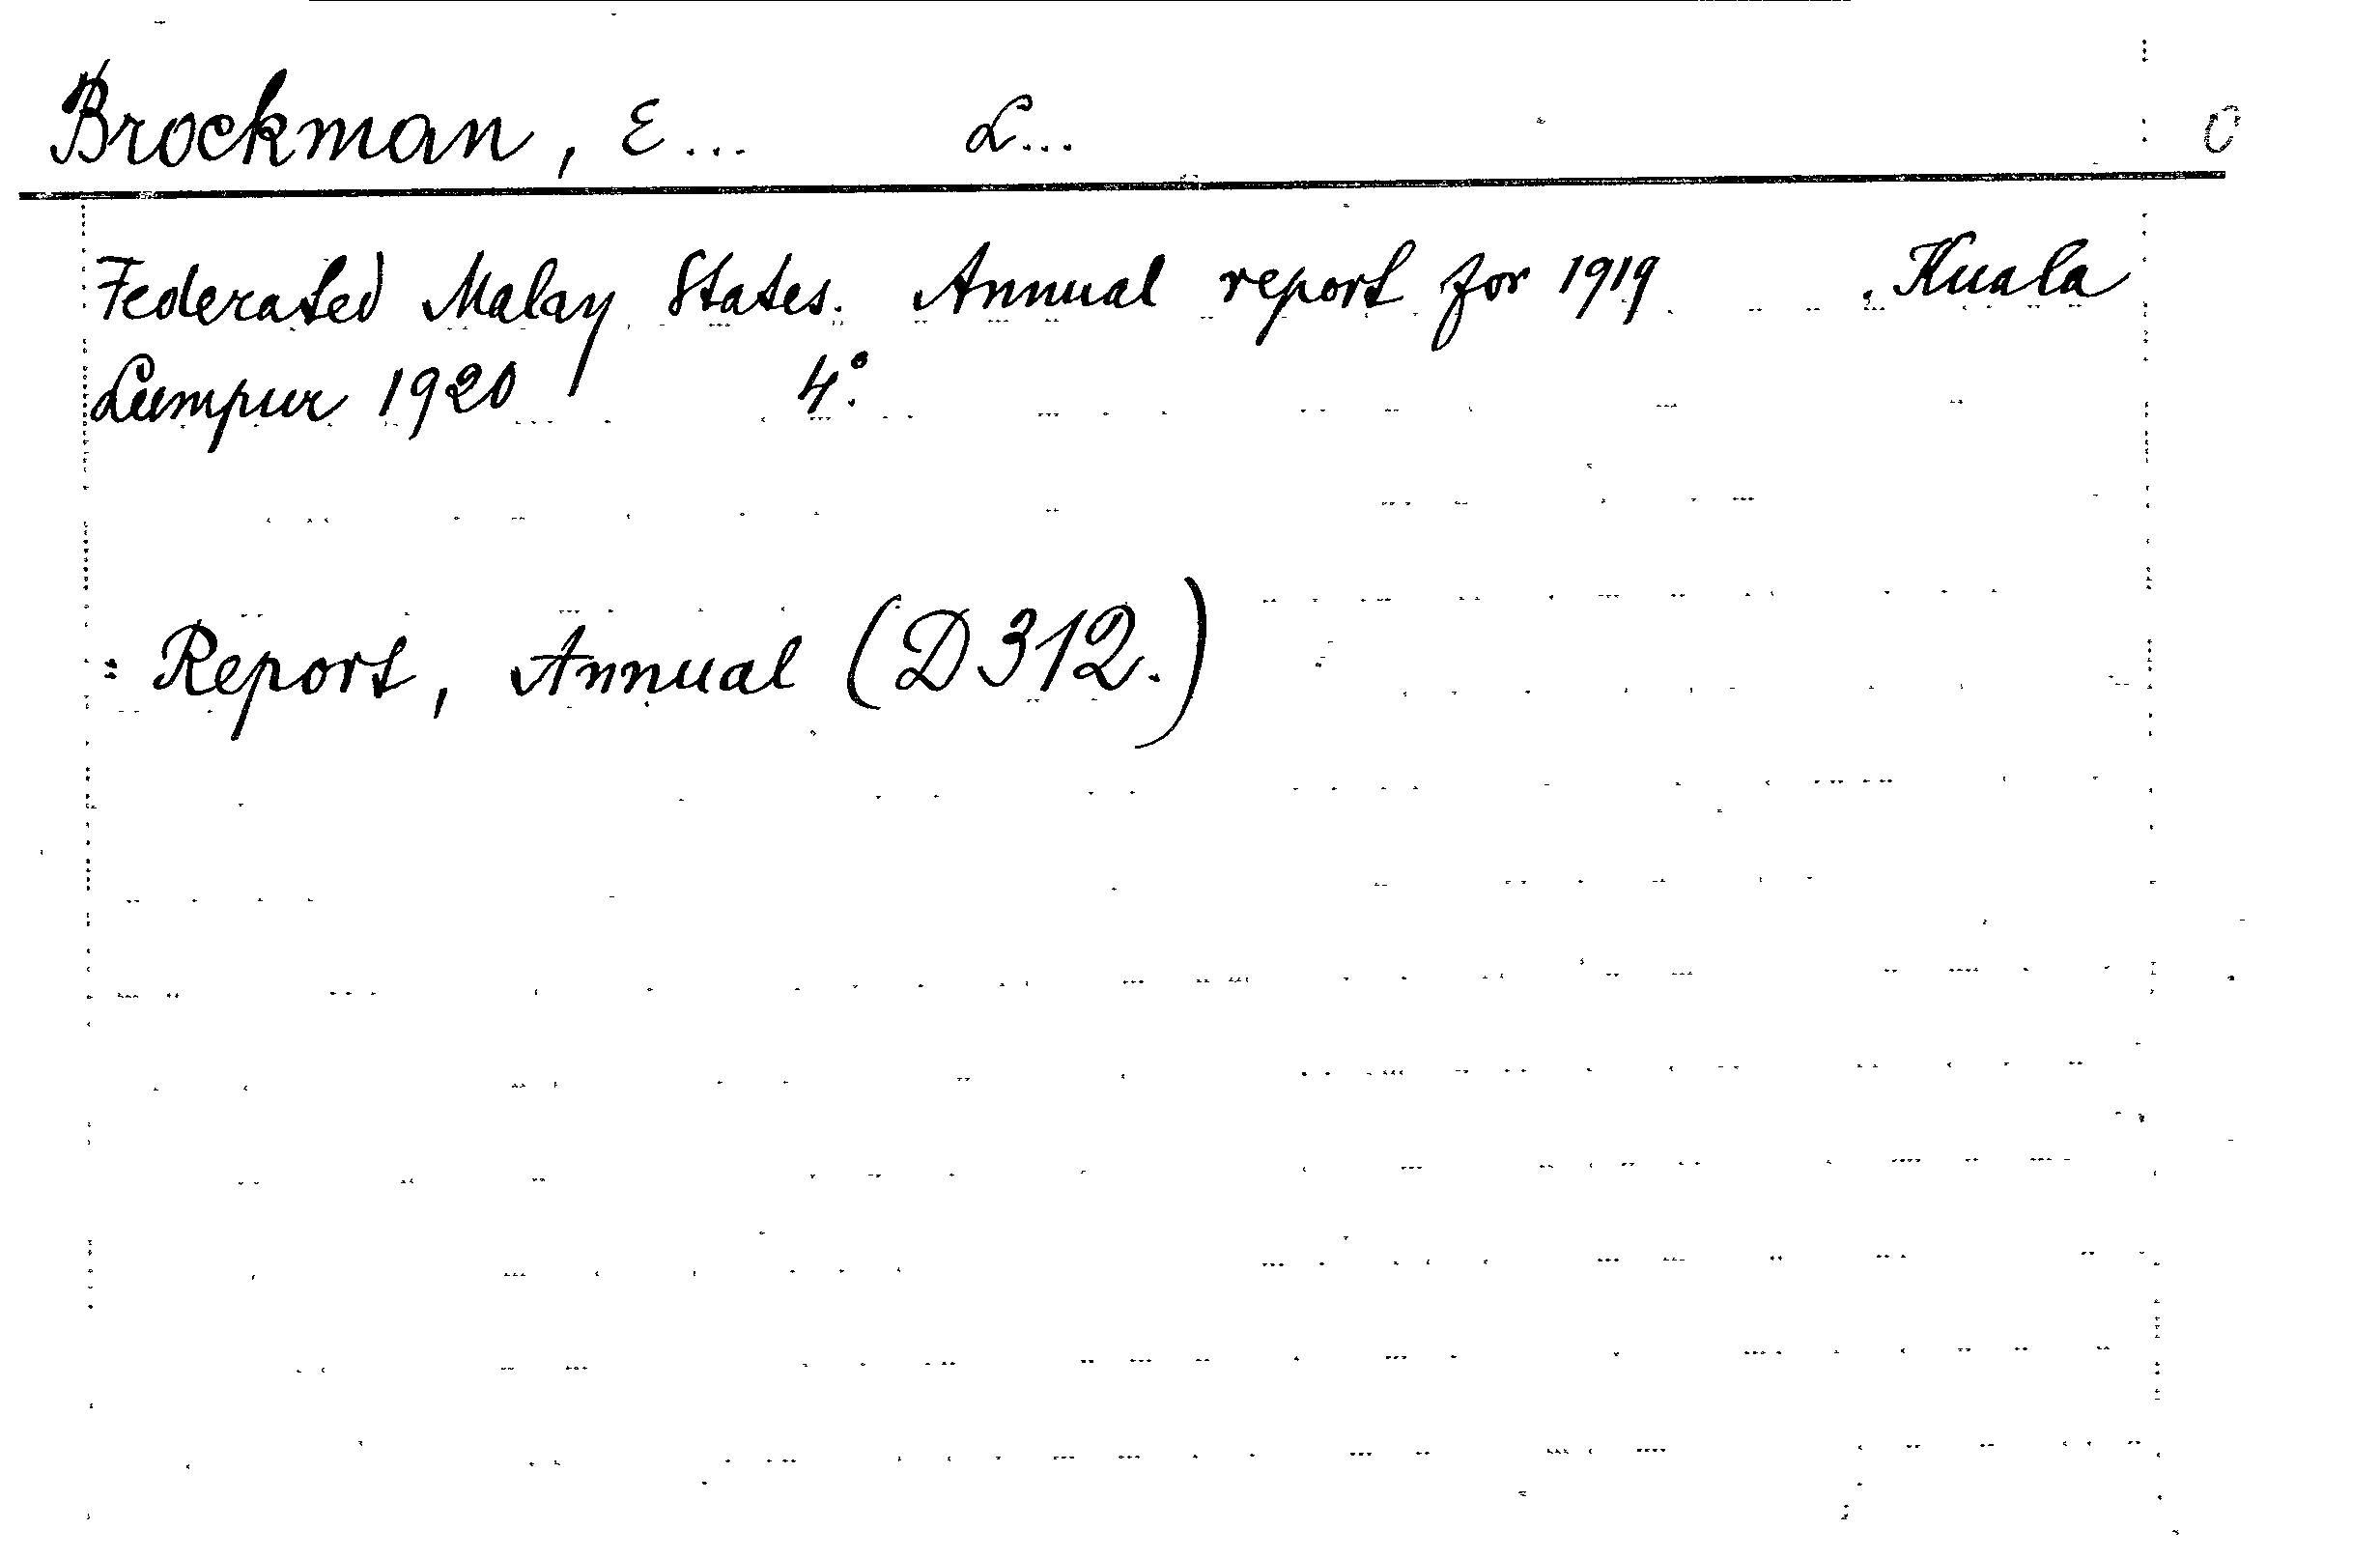 Brockman, E... L...
Federated Malay States. Annual report for 1919. Kuala
Lumpur 1920 4°.
= Report, Annual (D312.)